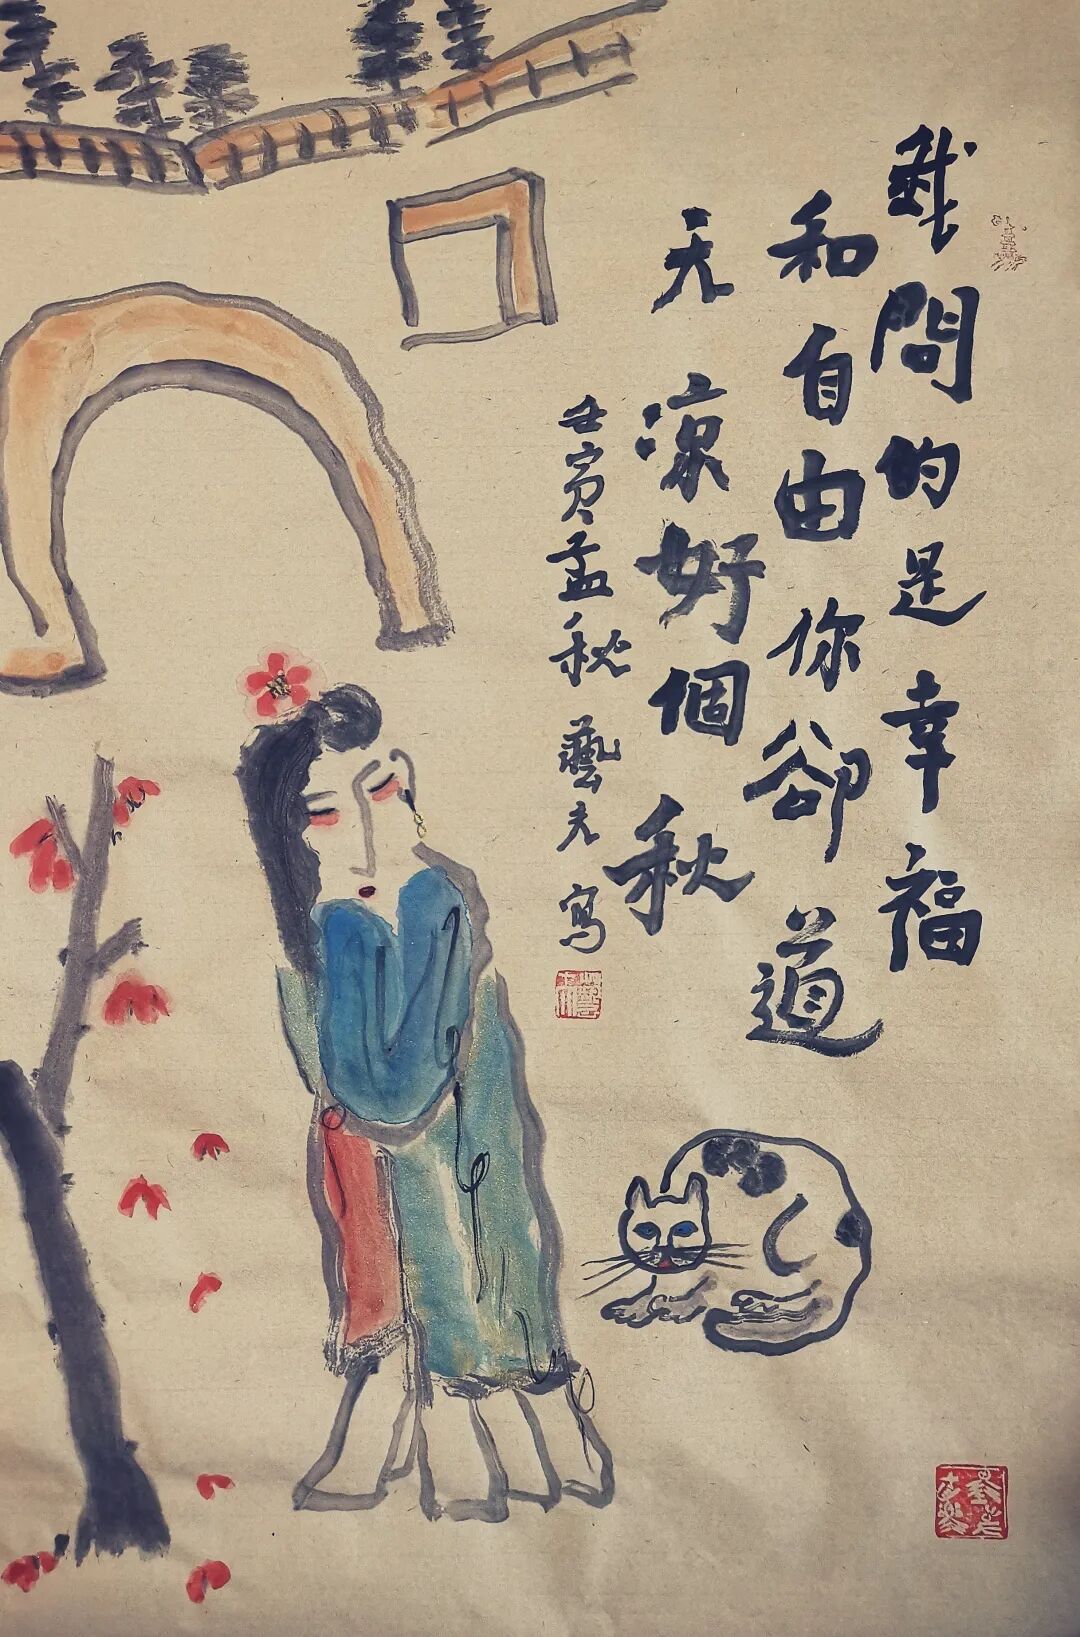 我問的是幸福
和自由你卻道
天涼好個秋
壬寅孟秋藝夫寫